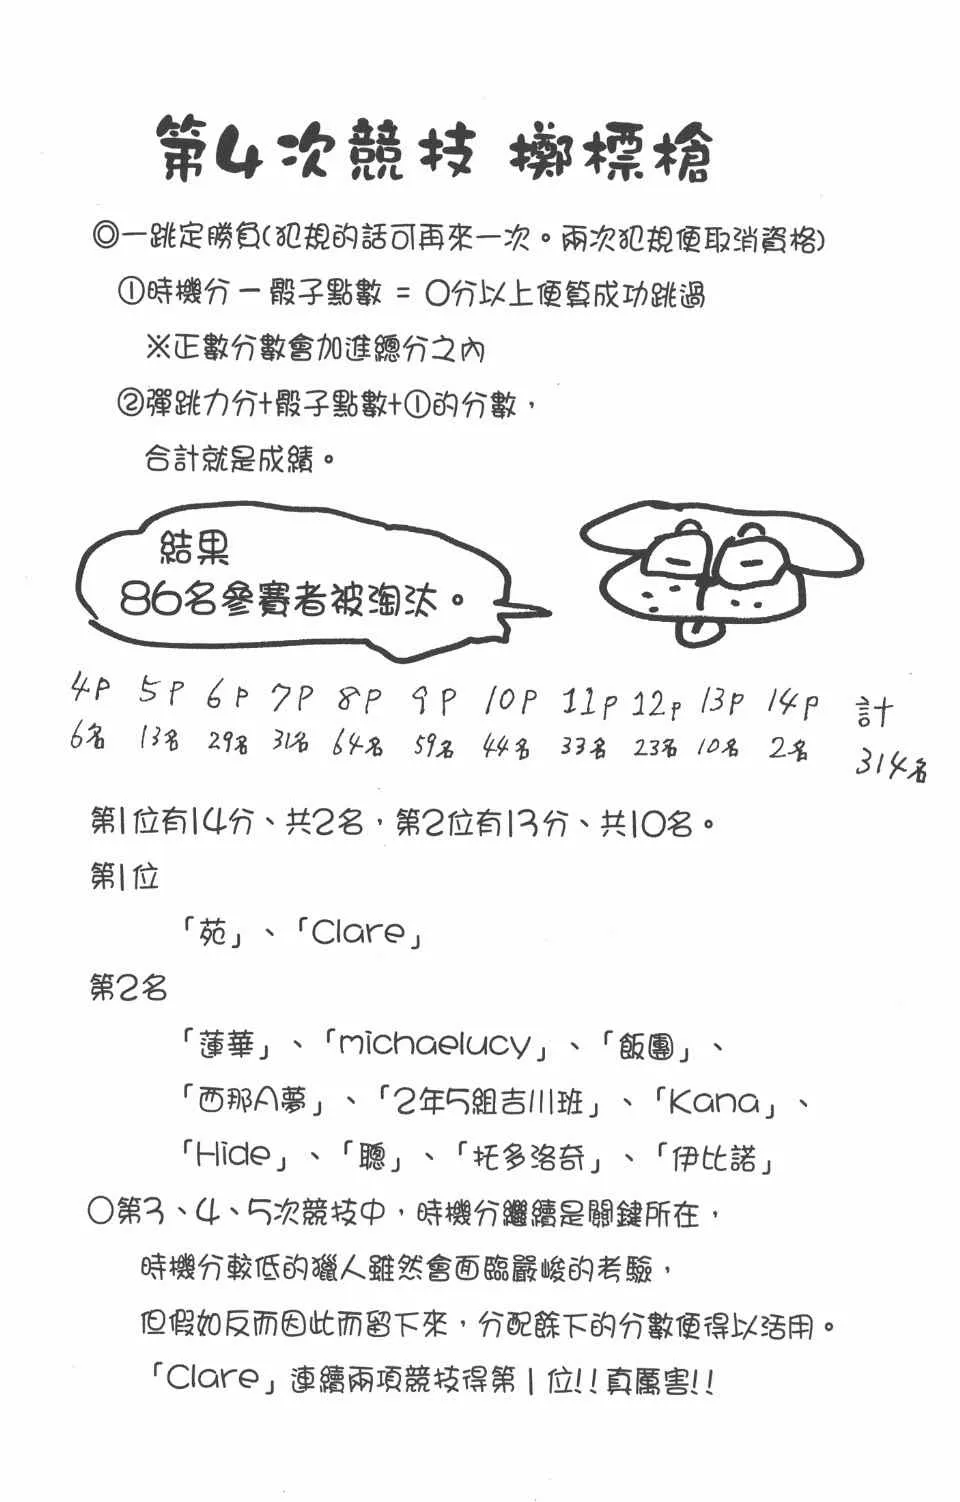 第4次競技 擲標槍
◎一跳定勝負(犯規的話可再來一次。兩次犯規便取消資格)
①時機分－骰子點數 = 0分以上便算成功跳過
※正數分數會加進總分之內
②彈跳力分+骰子點數+①的分數，
合計就是成績。
結果
86名參賽者被淘汰。
4P 5P 6P 7P 8P 9P 10P 11P 12P 13P 14P 計
6名 13名 29名 31名 64名 59名 44名 33名 23名 10名 2名 314名
第1位有14分、共2名，第2位有13分、共10名。
第1位
「苑」、「Clare」
第2名
「蓮華」、「michaelucy」、「飯團」、
「西那A夢」、「2年5組吉川班」、「Kana」、
「Hide」、「聰」、「托多洛奇」、「伊比諾」
〇第3、4、5次競技中，時機分繼續是關鍵所在，
時機分較低的獵人雖然會面臨嚴峻的考驗，
但假如反而因此而留下來，分配餘下的分數便得以活用。
「Clare」連續兩項競技得第1位!!真厲害!!